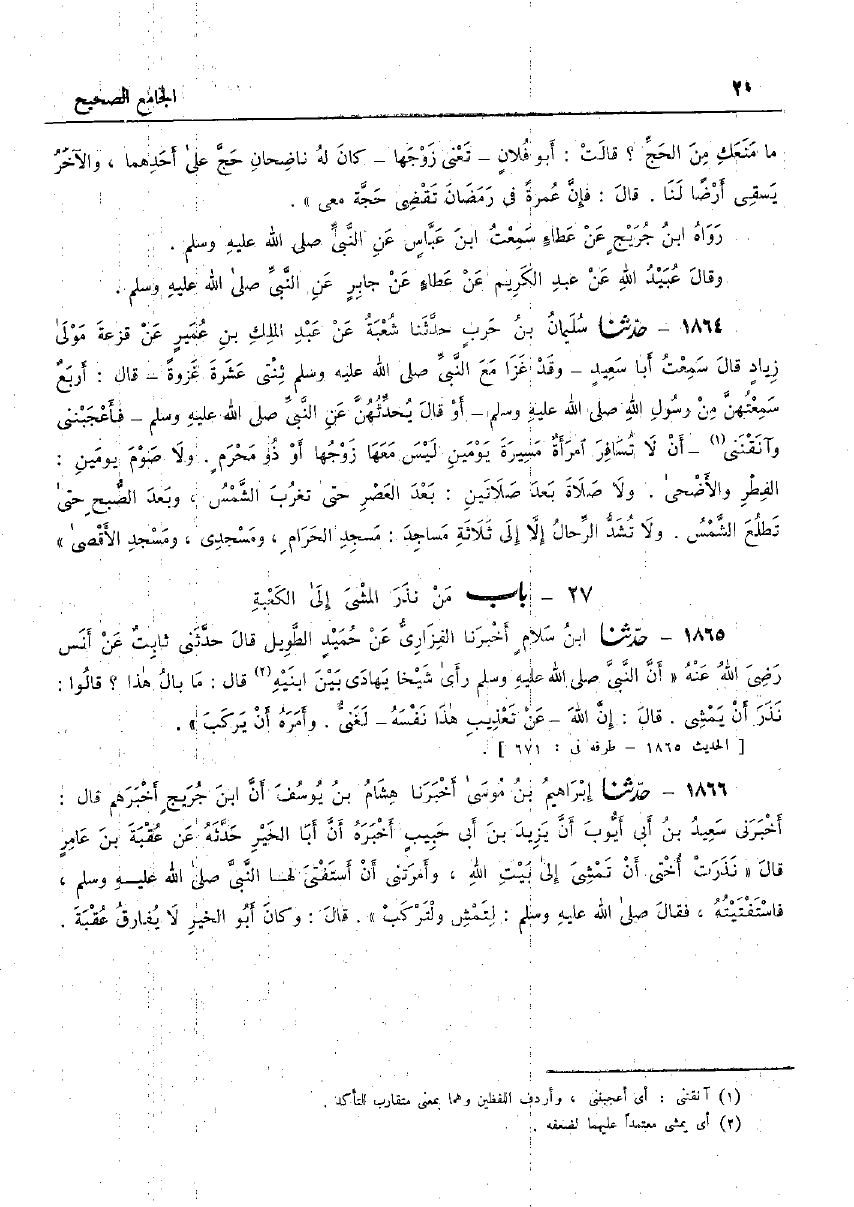 ٢٠
الجامع الصحيح
ما مَنَعَكِ مِنَ الحَجِّ ؟ قالَتْ : أَبو فُلانٍ – تَعْنى زَوْجَها – كانَ لهُ ناضِحانِ حَجَّ علىٰ أَحَدِهما ، والآخَرُ
يَسقِى أَرْضًا لَنَا . قالَ : فإِنَّ عُمرةً فى رَمَضَانَ تَقْضِى حَجَّة معى » .
رَوَاهُ ابنُ جُرَيْجٍ عَنْ عَطاءٍ سَمِعْتُ ابنَ عَبَّاسٍ عَنِ النَّبىِّ صلى الله عليهِ وسلم .
وقالَ عُبَيْدُ اللهِ عَنْ عبدِ الكَرِيم عَنْ عَطاءٍ عَنْ جابِرٍ عَنِ النَّبىِّ صلىٰ الله عليهِ وسلم .
١٨٦٤ – حدّثنا سُلَيمانُ بنُ حَربٍ حدَّثَنا شُعْبَةُ عَنْ عَبْدِ الملِكِ بنِ عُمَيرٍ عَنْ قزعةَ مَوْلَىٰ
زِيادٍ قالَ سَمِعْتُ أَبا سَعِيدٍ – وقَدْ غَزَا مَعَ النَّبىِّ صلى الله عليه وسلم ثِنْتَى عَشَرَةَ غَزوةً – قال : أَربَعٌ
سَمِعْتُهُنَّ مِنْ رسُولِ اللهِ صلى الله عليهِ وسلم– أَوْ قالَ يُحدِّثُهُنَّ عَنِ النَّبىِّ صلى الله عليهِ وسلم – فأَعْجَبْننى
وآنَقْنَنى(١) – أَنْ لَا تُسَافِرَ امرأَةٌ مَسِيرَةَ يَوْمَينِ لَيْسَ مَعَهَا زَوْجُها أَوْ ذُو مَحْرَمٍ . ولَا صَوْمَ يومَينِ :
الفِطْرِ والأَضْحىٰ . ولَا صَلَاةَ بَعدَ صَلَاتَينِ : بَعْدَ العَصْرِ حتىٰ تغرُبَ الشَّمْسُ ، وبَعدَ الصُّبحِ حتىٰ
تَطلُعَ الشَّمْسُ . ولَا تُشَدُّ الرِّحالُ إِلَّا إِلَى ثَلَاثَةِ مَساجِدَ : مَسجِدِ الحَرامِ ، ومَسْجدِى ، ومَسْجدِ الأَقْصىٰ »
٢٧ – باب مَنْ نذَرَ المشْىَ إِلَىٰ الكَعْبَةِ
١٨٦٥ – حدّثنا ابنُ سَلَامٍ أَخبرَنا الفِزَارِىُّ عَنْ حُمَيْدٍ الطَّوِيلِ قالَ حدَّثَنى ثابِتٌ عَنْ أَنَسٍ
رَضِىَ اللهُ عَنْهُ « أَنَّ النَّبىَّ صلى الله عليهِ وسلم رأَىٰ شَيْخا يُهادَى بَيْنَ ابنَيْهِ(٢) قال : مَا بالُ هٰذا ؟ قالُوا :
نَذَرَ أَنْ يَمْشِى . قالَ : إِنَّ اللهَ – عَنْ تَعْذِيبِ هٰذَا نَفْسَهُ – لَغَنىٌّ . وأَمَرَهُ أَنْ يَركَبَ » .
[ الحديث ١٨٦٥ – طرفه فى : ٦٧١ ] .
١٨٦٦ – حدّثنا إِبْرَاهِيمُ بنُ مُوسَىٰ أَخبَرَنا هِشَامُ بنُ يُوسُفَ أَنَّ ابنَ جُرَيجٍ أَخبَرَهم قال :
أَخْبَرَنى سَعِيدُ بنُ أَبى أَيُّوبَ أَنَّ يَزِيدَ بنَ أَبى حَبِيبٍ أَخْبَرَهُ أَنَّ أَبَا الخَيْرِ حَدَّثَهُ عَن عُقْبَةَ بنِ عَامِرٍ
قالَ « نَذَرَتْ أُخْتى أَنْ تَمْشِىَ إِلَىٰ بَيْتِ اللهِ ، وأَمرَتْنى أَنْ أَستَفْتىَ لهـا النَّبىَّ صلىٰ الله عليـهِ وسلم ،
فاسْتَفْتَيْتُهُ ، فقالَ صلىٰ الله عليهِ وسلم : لِتَمْشِ ولْتَرْكَبْ » . قالَ : وكانَ أَبُو الخيرِ لَا يُفارقُ عُقْبَةَ .
(١) آنقننى : أى أعجبننى ، وأردف اللفظين وهما بمعنى متقارب للتأكد .
(٢) أى يمشى معتمداً عليهما لضعفه .